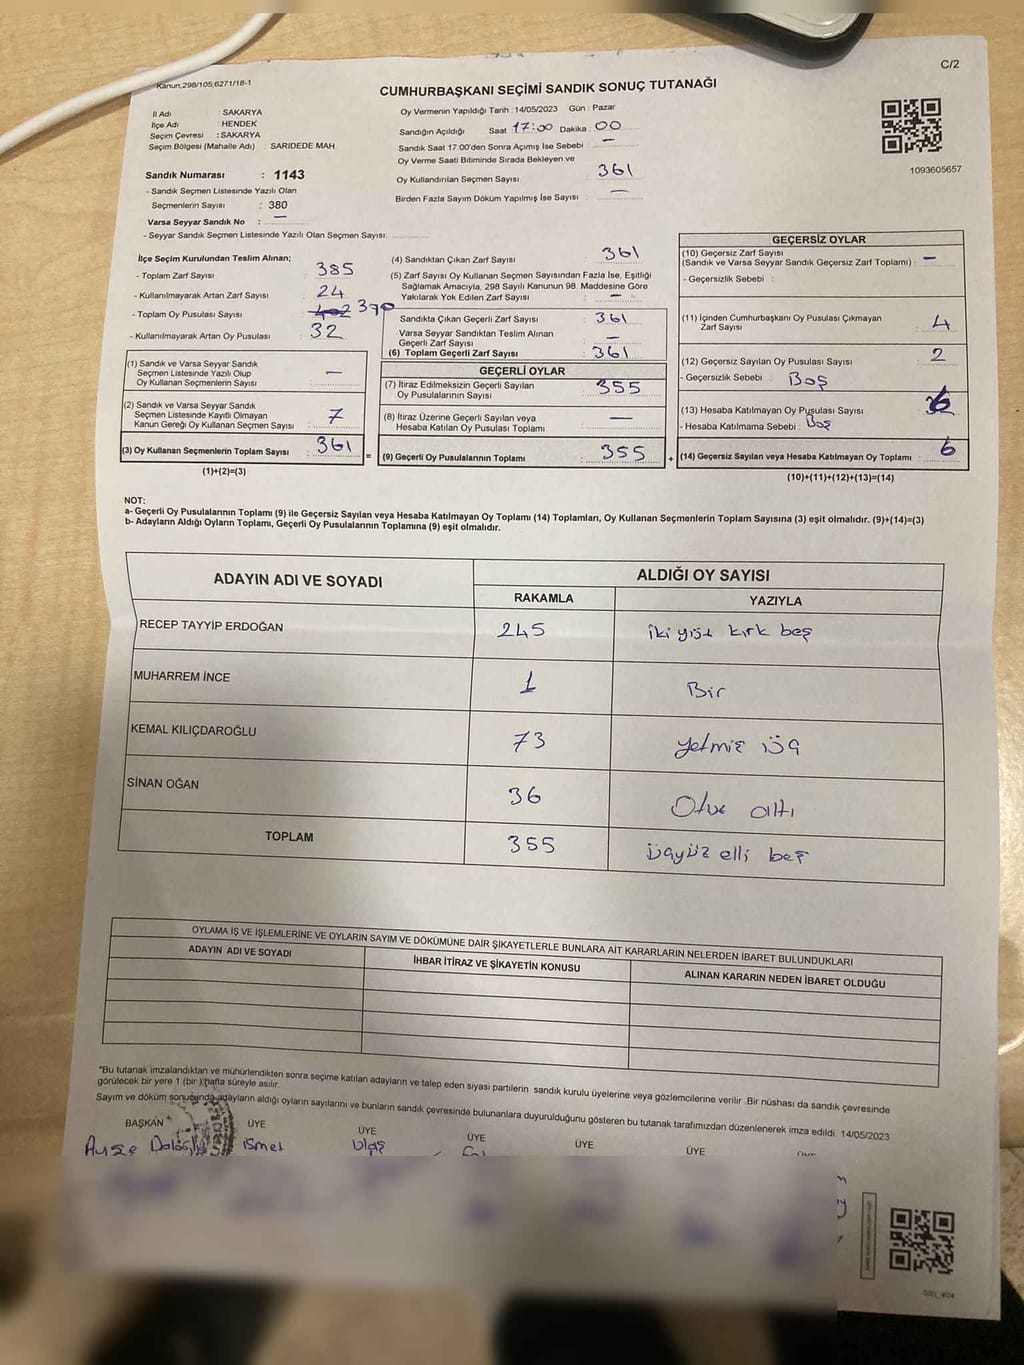 Kanun;298/105,6271/16-1
C/2
CUMHURBAŞKANI SEÇİMİ SANDIK SONUÇ TUTANAĞI
İl Adı : SAKARYA
İlçe Adı : HENDEK
Seçim Çevresi : SAKARYA
Seçim Bölgesi (Mahalle Adı) : SARIDEDE MAH
Oy Vermenin Yapıldığı Tarih : 14/05/2023 Gün : Pazar
Sandığın Açıldığı Saat 17:00 Dakika : 00
Sandık Saat 17:00'den Sonra Açımış İse Sebebi : —
Oy Verme Saati Bitiminde Sırada Bekleyen ve
Oy Kullandırılan Seçmen Sayısı 361
Birden Fazla Sayım Döküm Yapılmış İse Sayısı : —
1093605657
Sandık Numarası : 1143
- Sandık Seçmen Listesinde Yazılı Olan
Seçmenlerin Sayısı : 380
Varsa Seyyar Sandık No : —
- Seyyar Sandık Seçmen Listesinde Yazılı Olan Seçmen Sayısı:
İlçe Seçim Kurulundan Teslim Alınan;
- Toplam Zarf Sayısı 385
- Kullanılmayarak Artan Zarf Sayısı 24
- Toplam Oy Pusulası Sayısı 402 370
- Kullanılmayarak Artan Oy Pusulası 32
(1) Sandık ve Varsa Seyyar Sandık
Seçmen Listesinde Yazılı Olup
Oy Kullanan Seçmenlerin Sayısı : —
(2) Sandık ve Varsa Seyyar Sandık
Seçmen Listesinde Kayıtlı Olmayan
Kanun Gereği Oy Kullanan Seçmen Sayısı : 7
(3) Oy Kullanan Seçmenlerin Toplam Sayısı : 361
(1)+(2)=(3)
(4) Sandıktan Çıkan Zarf Sayısı : 361
(5) Zarf Sayısı Oy Kullanan Seçmen Sayısından Fazla İse, Eşitliği
Sağlamak Amacıyla, 298 Sayılı Kanunun 98. Maddesine Göre
Yakılarak Yok Edilen Zarf Sayısı : —
Sandıkta Çıkan Geçerli Zarf Sayısı : 361
Varsa Seyyar Sandıktan Teslim Alınan
Geçerli Zarf Sayısı : —
(6) Toplam Geçerli Zarf Sayısı : 361
GEÇERLİ OYLAR
(7) İtiraz Edilmeksizin Geçerli Sayılan
Oy Pusulalarının Sayısı : 355
(8) İtiraz Üzerine Geçerli Sayılan veya
Hesaba Katılan Oy Pusulası Toplamı : —
= (9) Geçerli Oy Pusulalarının Toplamı : 355 +
GEÇERSİZ OYLAR
(10) Geçersiz Zarf Sayısı
(Sandık ve Varsa Seyyar Sandık Geçersiz Zarf Toplamı) : —
- Geçersizlik Sebebi :
(11) İçinden Cumhurbaşkanı Oy Pusulası Çıkmayan
Zarf Sayısı : 4
(12) Geçersiz Sayılan Oy Pusulası Sayısı : 2
- Geçersizlik Sebebi : Boş
(13) Hesaba Katılmayan Oy Pusulası Sayısı :
- Hesaba Katılmama Sebebi : Boş
(14) Geçersiz Sayılan veya Hesaba Katılmayan Oy Toplamı : 6
(10)+(11)+(12)+(13)=(14)
NOT:
a- Geçerli Oy Pusulalarının Toplamı (9) ile Geçersiz Sayılan veya Hesaba Katılmayan Oy Toplamı (14) Toplamları, Oy Kullanan Seçmenlerin Toplam Sayısına (3) eşit olmalıdır. (9)+(14)=(3)
b- Adayların Aldığı Oyların Toplamı, Geçerli Oy Pusulalarının Toplamına (9) eşit olmalıdır.
ADAYIN ADI VE SOYADI
ALDIĞI OY SAYISI
RAKAMLA YAZIYLA
RECEP TAYYİP ERDOĞAN 245 iki yüz kırk beş
MUHARREM İNCE 1 Bir
KEMAL KILIÇDAROĞLU 73 Yetmiş üç
SİNAN OĞAN 36 Otuz altı
TOPLAM 355 üçyüz elli beş
OYLAMA İŞ VE İŞLEMLERİNE VE OYLARIN SAYIM VE DÖKÜMÜNE DAİR ŞİKAYETLERLE BUNLARA AİT KARARLARIN NELERDEN İBARET BULUNDUKLARI
ADAYIN ADI VE SOYADI İHBAR İTİRAZ VE ŞİKAYETİN KONUSU ALINAN KARARIN NEDEN İBARET OLDUĞU
*Bu tutanak imzalandıktan ve mühürlendikten sonra seçime katılan adayların ve talep eden siyasi partilerin sandık kurulu üyelerine veya gözlemcilerine verilir .Bir nüshası da sandık çevresinde
görülecek bir yere 1 (bir ) hafta süreyle asılır.
Sayım ve döküm sonucunda adayların aldığı oyların sayılarını ve bunların sandık çevresinde bulunanlara duyurulduğunu gösteren bu tutanak tarafımızdan düzenlenerek imza edildi. 14/05/2023
BAŞKAN ÜYE ÜYE ÜYE ÜYE ÜYE
Ayşe ismet Ulaş